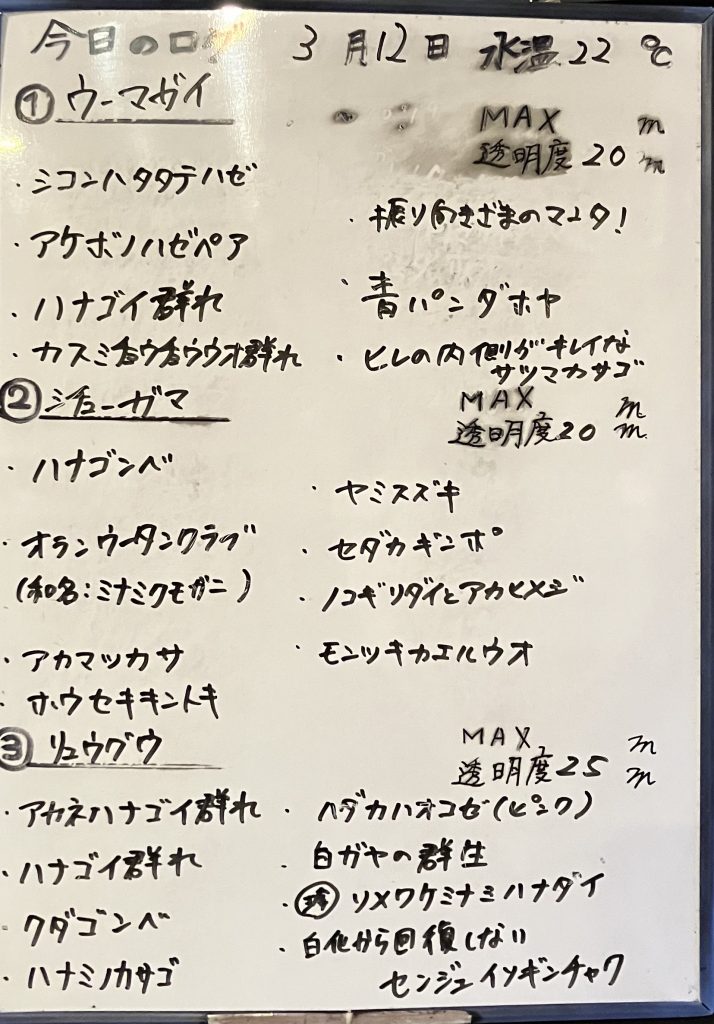 今日のログ 3月12日 水温22℃
① ウーマガイ
MAX m
透明度20m
・シコンハタタテハゼ
・アケボノハゼペア
・ハナゴイ群れ
・カスミチョウチョウウオ群れ
・振り向きざまのマンタ!
・青パンダホヤ
・ヒレの内側がキレイな
サツマカサゴ
② シチューガマ
MAX m
透明度20m
・ハナゴンベ
・オランウータンクラブ
(和名:ミナミクモガニ)
・アカマツカサ
・ホウセキキントキ
・ヤミスズキ
・セダカギンポ
・ノコギリダイとアカヒメジ
・モンツキカエルウオ
③ リュウグウ
MAX m
透明度25m
・アカネハナゴイ群れ
・ハナゴイ群れ
・クダゴンベ
・ハナミノカサゴ
・ハダカハオコゼ(ピンク)
・白ガヤの群生
・ソメワケミナミハナダイ
・白化から回復しない
センジュイソギンチャク